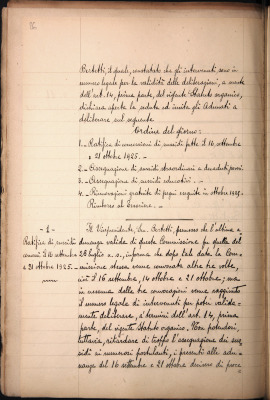 Bertotti, il quale, constatato che gli intervenuti, sono in
numero legale per la validità delle deliberazioni, a mente
dell'art. 14, prima parte, del vigente Statuto organico,
dichiara aperta la seduta ed invita gli Adunati a
deliberare sul seguente
Ordine del giorno:
1 - Ratifica di concessioni di sussidi fatte il 16 settembre
e 21 ottobre 1925. -
2 - Assegnazione di sussidi straordinari a decaduti poveri.
3 - Assegnazione di sussidi educativi. -
4 - Rinnovazioni gratuite di pegni eseguite in ottobre 1925. -
Rimborso al Esercizio. -
- 1 -
Ratifica di sussidi
concessi il 16 settembre
e 21 ottobre 1925. -
Il Vicepresidente, Cav. Bertotti, premesso che l'ultima a-
dunanza valida di questa Commissione fu quella del
28 luglio u. s., informa che dopo tale data la Com-
missione stessa venne convocata altre tre volte,
cioè il 16 settembre, 14 ottobre e 21 ottobre; ma
in nessuna delle tre convocazioni venne raggiunto
il numero legale di intervenuti per poter valida-
mente deliberare, a termini dell'art. 14, prima
parte, del vigente Statuto organico. Non potendosi,
tuttavia, ritardare di troppo l'assegnazione dei sus-
sidi ai numerosi postulanti, i presenti alle adu-
nanze del 16 settembre e 21 ottobre decisero di proce